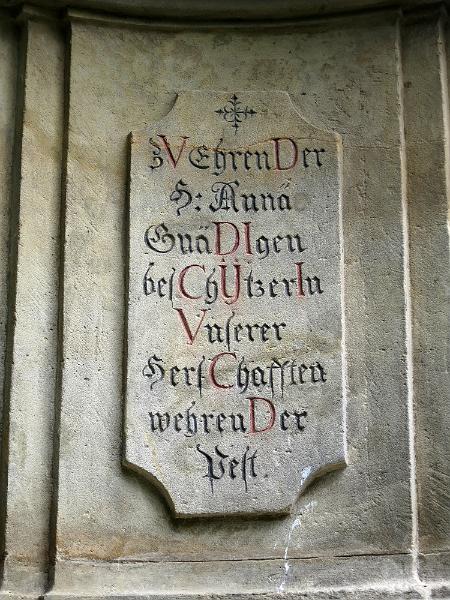 zV EhrenDer
H: Annä
GnäDIgen
beſCHÿtzerIn
Vnſerer
HerſChafften
wehrenDer
Peſt.